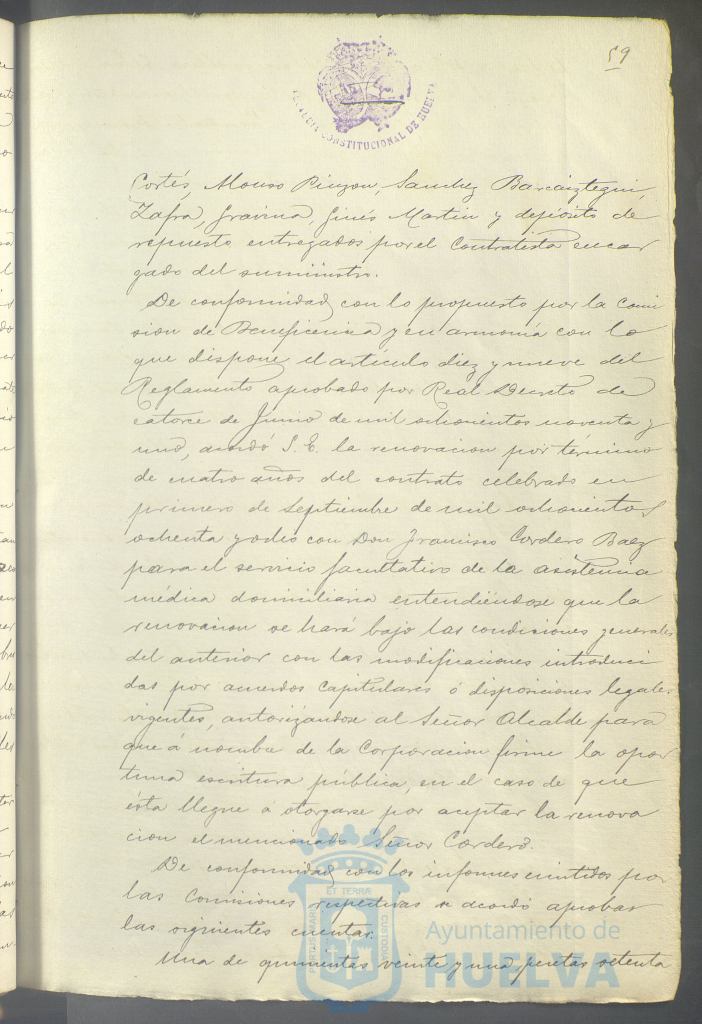 59
ALCALDIA CONSTITUCIONAL DE HUELVA
Cortés, Alonso Pinzon, Sanchez Barcaiztegui,
Zafra, Gravina, Ginés Martin y depósito de
repuesto entregados por el Contratista encar
gado del suministro.
De conformidad con lo propuesto por la Comi
sion de Beneficencia y en armonía con lo
que dispone el artículo diez y nueve del
Reglamento aprobado por Real Decreto de
catorce de Junio de mil ochocientos noventa y
uno, acordó S. E. la renovacion por término
de cuatro años del contrato celebrado en
primero de Septiembre de mil ochocientos
ochenta y ocho con Don Francisco Cordero Baez
para el servicio facultativo de la asistencia
médica domiciliaria entendiéndose que la
renovacion se hará bajo las condiciones generales
del anterior con las modificaciones introduci
das por acuerdos capitulares ó disposiciones legales
vigentes, autorizándose al Señor Alcalde para
que á nombre de la Corporacion firme la opor
tuna escritura pública, en el caso de que
ésta llegue á otorgarse por aceptar la renova
cion el mencionado Señor Cordero.
De conformidad con los informes emitidos por
las Comisiones respectivas se acordó aprobar
las siguientes cuentas:
Una de quinientas veinte y una pesetas setenta
PORTUS MARIS ET TERRÆ CUSTODIA
Ayuntamiento de
HUELVA